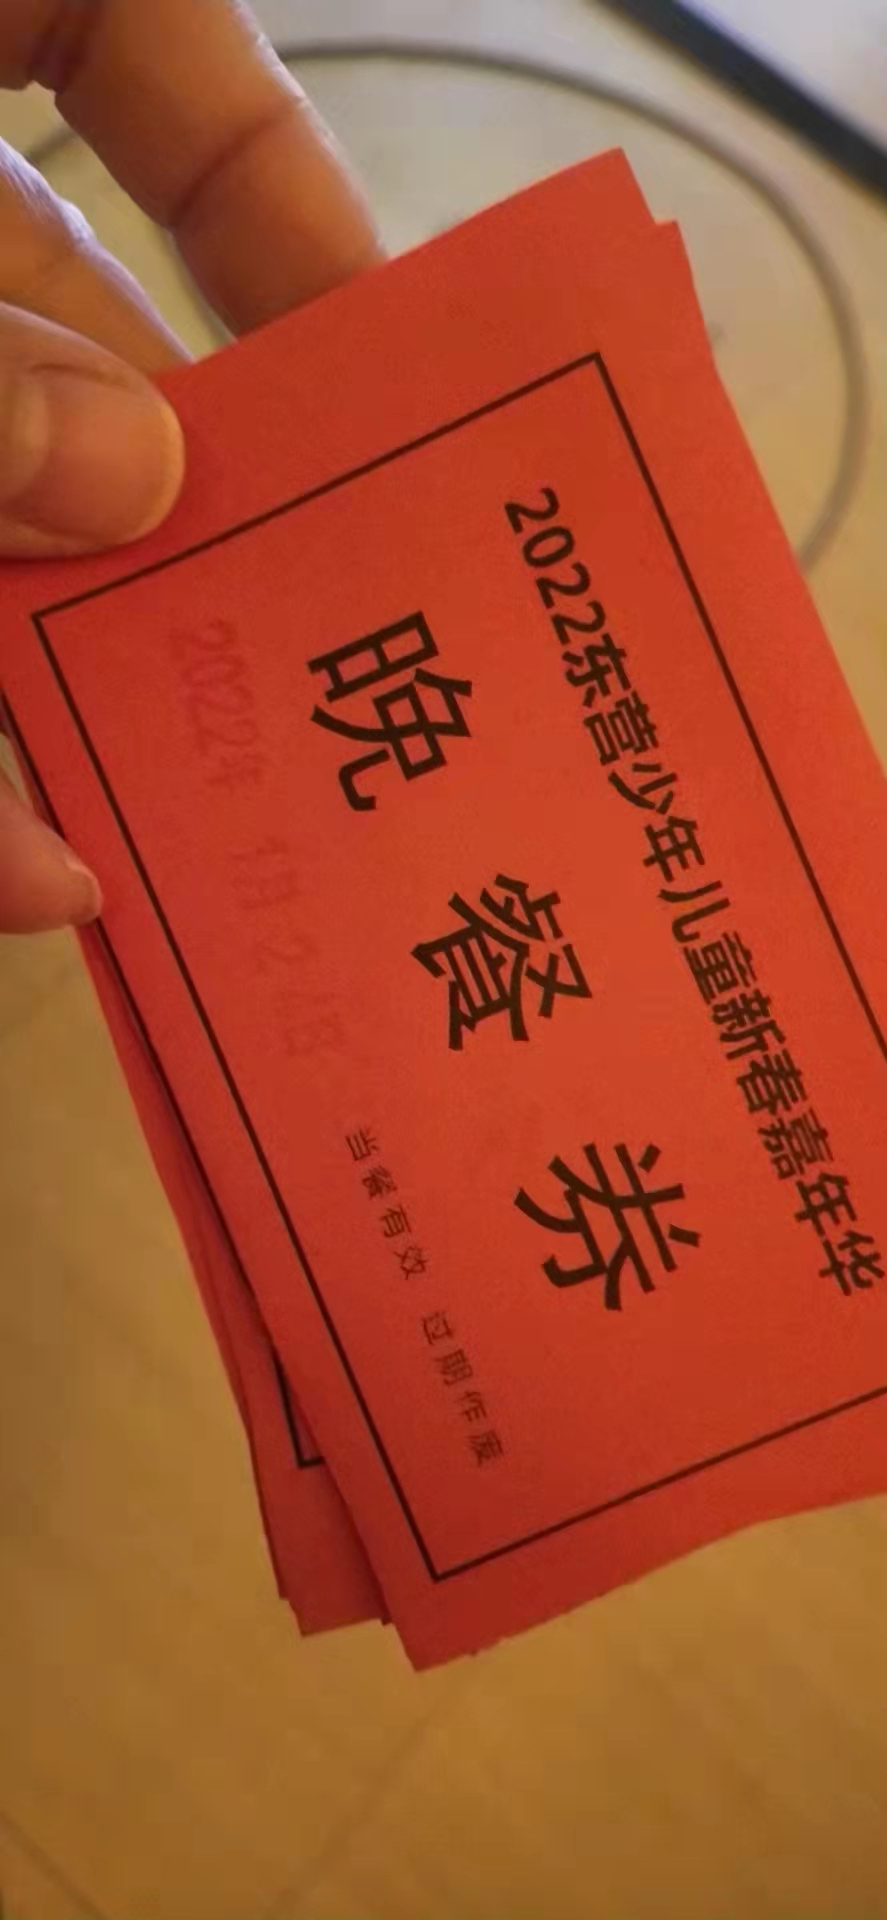 2022东营少年儿童新春嘉年华
晚餐券
2022年 1月2
当餐有效 过期作废